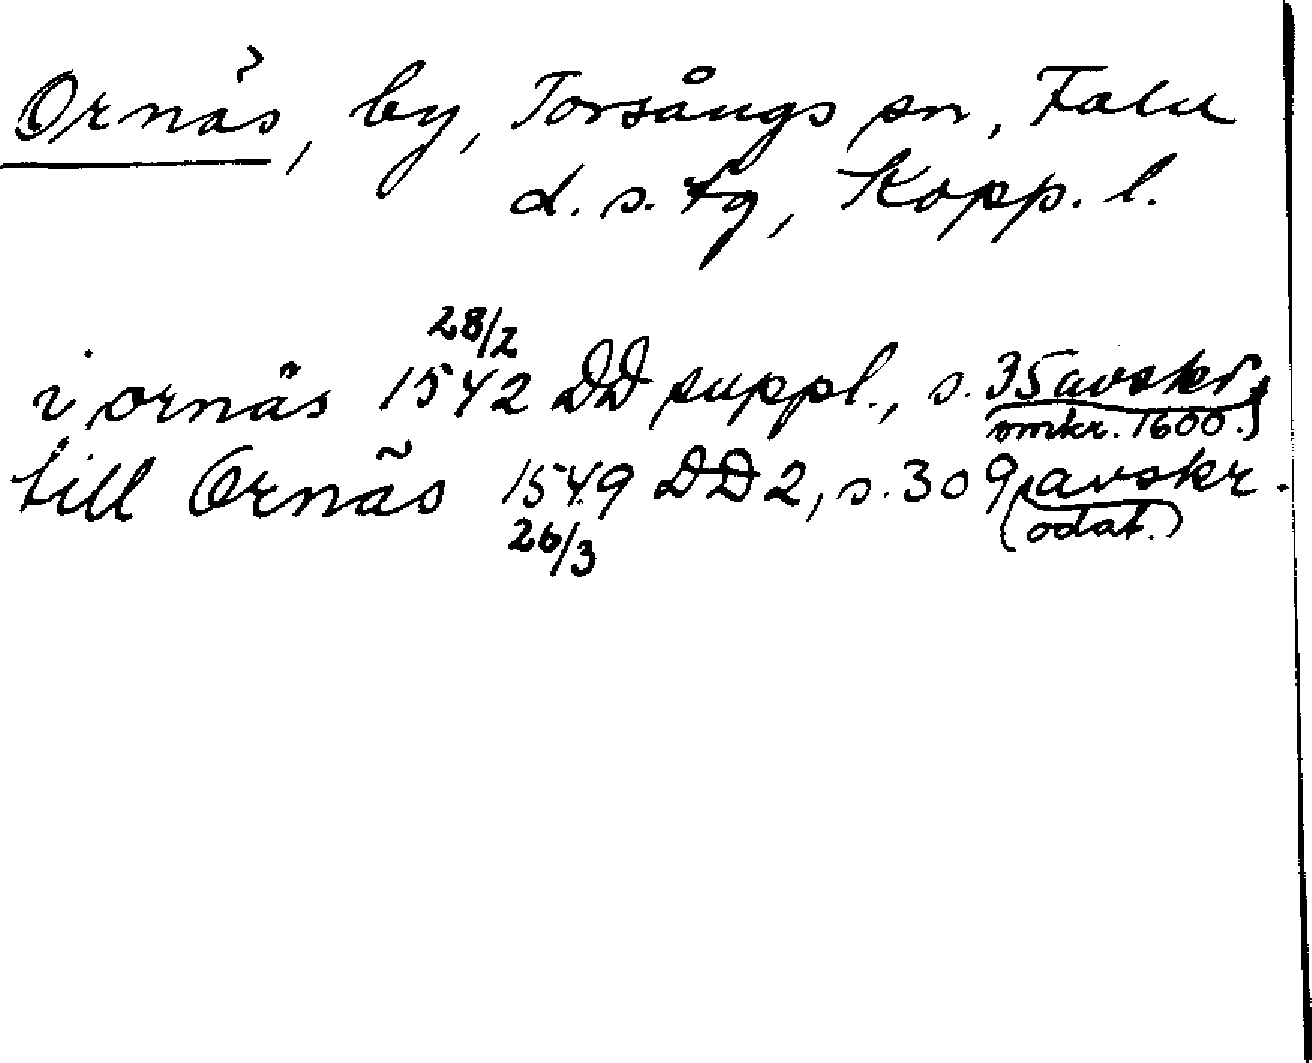 Ornäs, by, Torsångs sn, Falu
d. s. tg, Kopp. l.
28/2
i ornäs 1542 DD suppl., s. 35 avskr.
omkr. 1600.)
till Ornäs 1549 DD 2, s. 309 avskr.
26/3 (odat.)